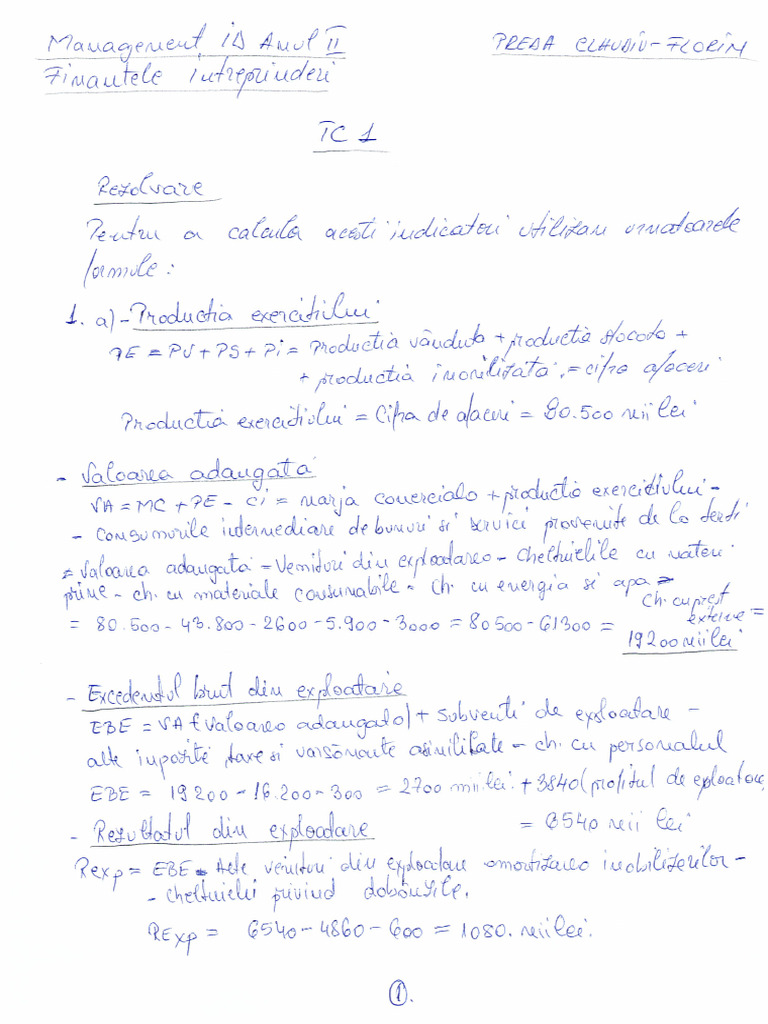 Management ID Anul II
PREDA CLAUDIU-FLORIN
Finantele intreprinderi
TC 1
Rezolvare
Pentru a calcula acesti indicatori utilizam urmatoarele
formule:
1. a) - Productia exercitiului
PE = PV + PS + Pi = Productia vânduta + productia stocata +
+ productia imobilizata = cifra afaceri
Productia exercitiului = Cifra de afaceri = 80.500 mii lei
- Valoarea adaugata
VA = MC + PE - Ci = marja comerciala + productia exercitiului -
- Consumurile intermediare de bunuri si servici provenite de la terti
= Valoarea adaugata = Venituri din exploatarea - cheltuielile cu materi
prime - ch. cu materiale consumabile - ch. cu energia si apa -
ch. cu prest externe =
= 80.500 - 43.800 - 2600 - 5.900 - 3000 = 80500 - 61300 =
19200 mii lei
- Excedentul brut din exploatare
EBE = VA (valoarea adaugata) + Subventi de exploatare -
alte impozite taxe si varsaminte asimilate - ch. cu personalul
EBE = 19200 - 16.200 - 300 = 2700 mii lei + 3840 (profitul de exploatare)
= 6540 mii lei
- Rezultatul din exploatare
Rexp = EBE - Alte venituri din exploatare amortizarea imobilizarilor -
- cheltuieli privind dobânzile.
RExp = 6540 - 4860 - 600 = 1080. mii lei.
1.